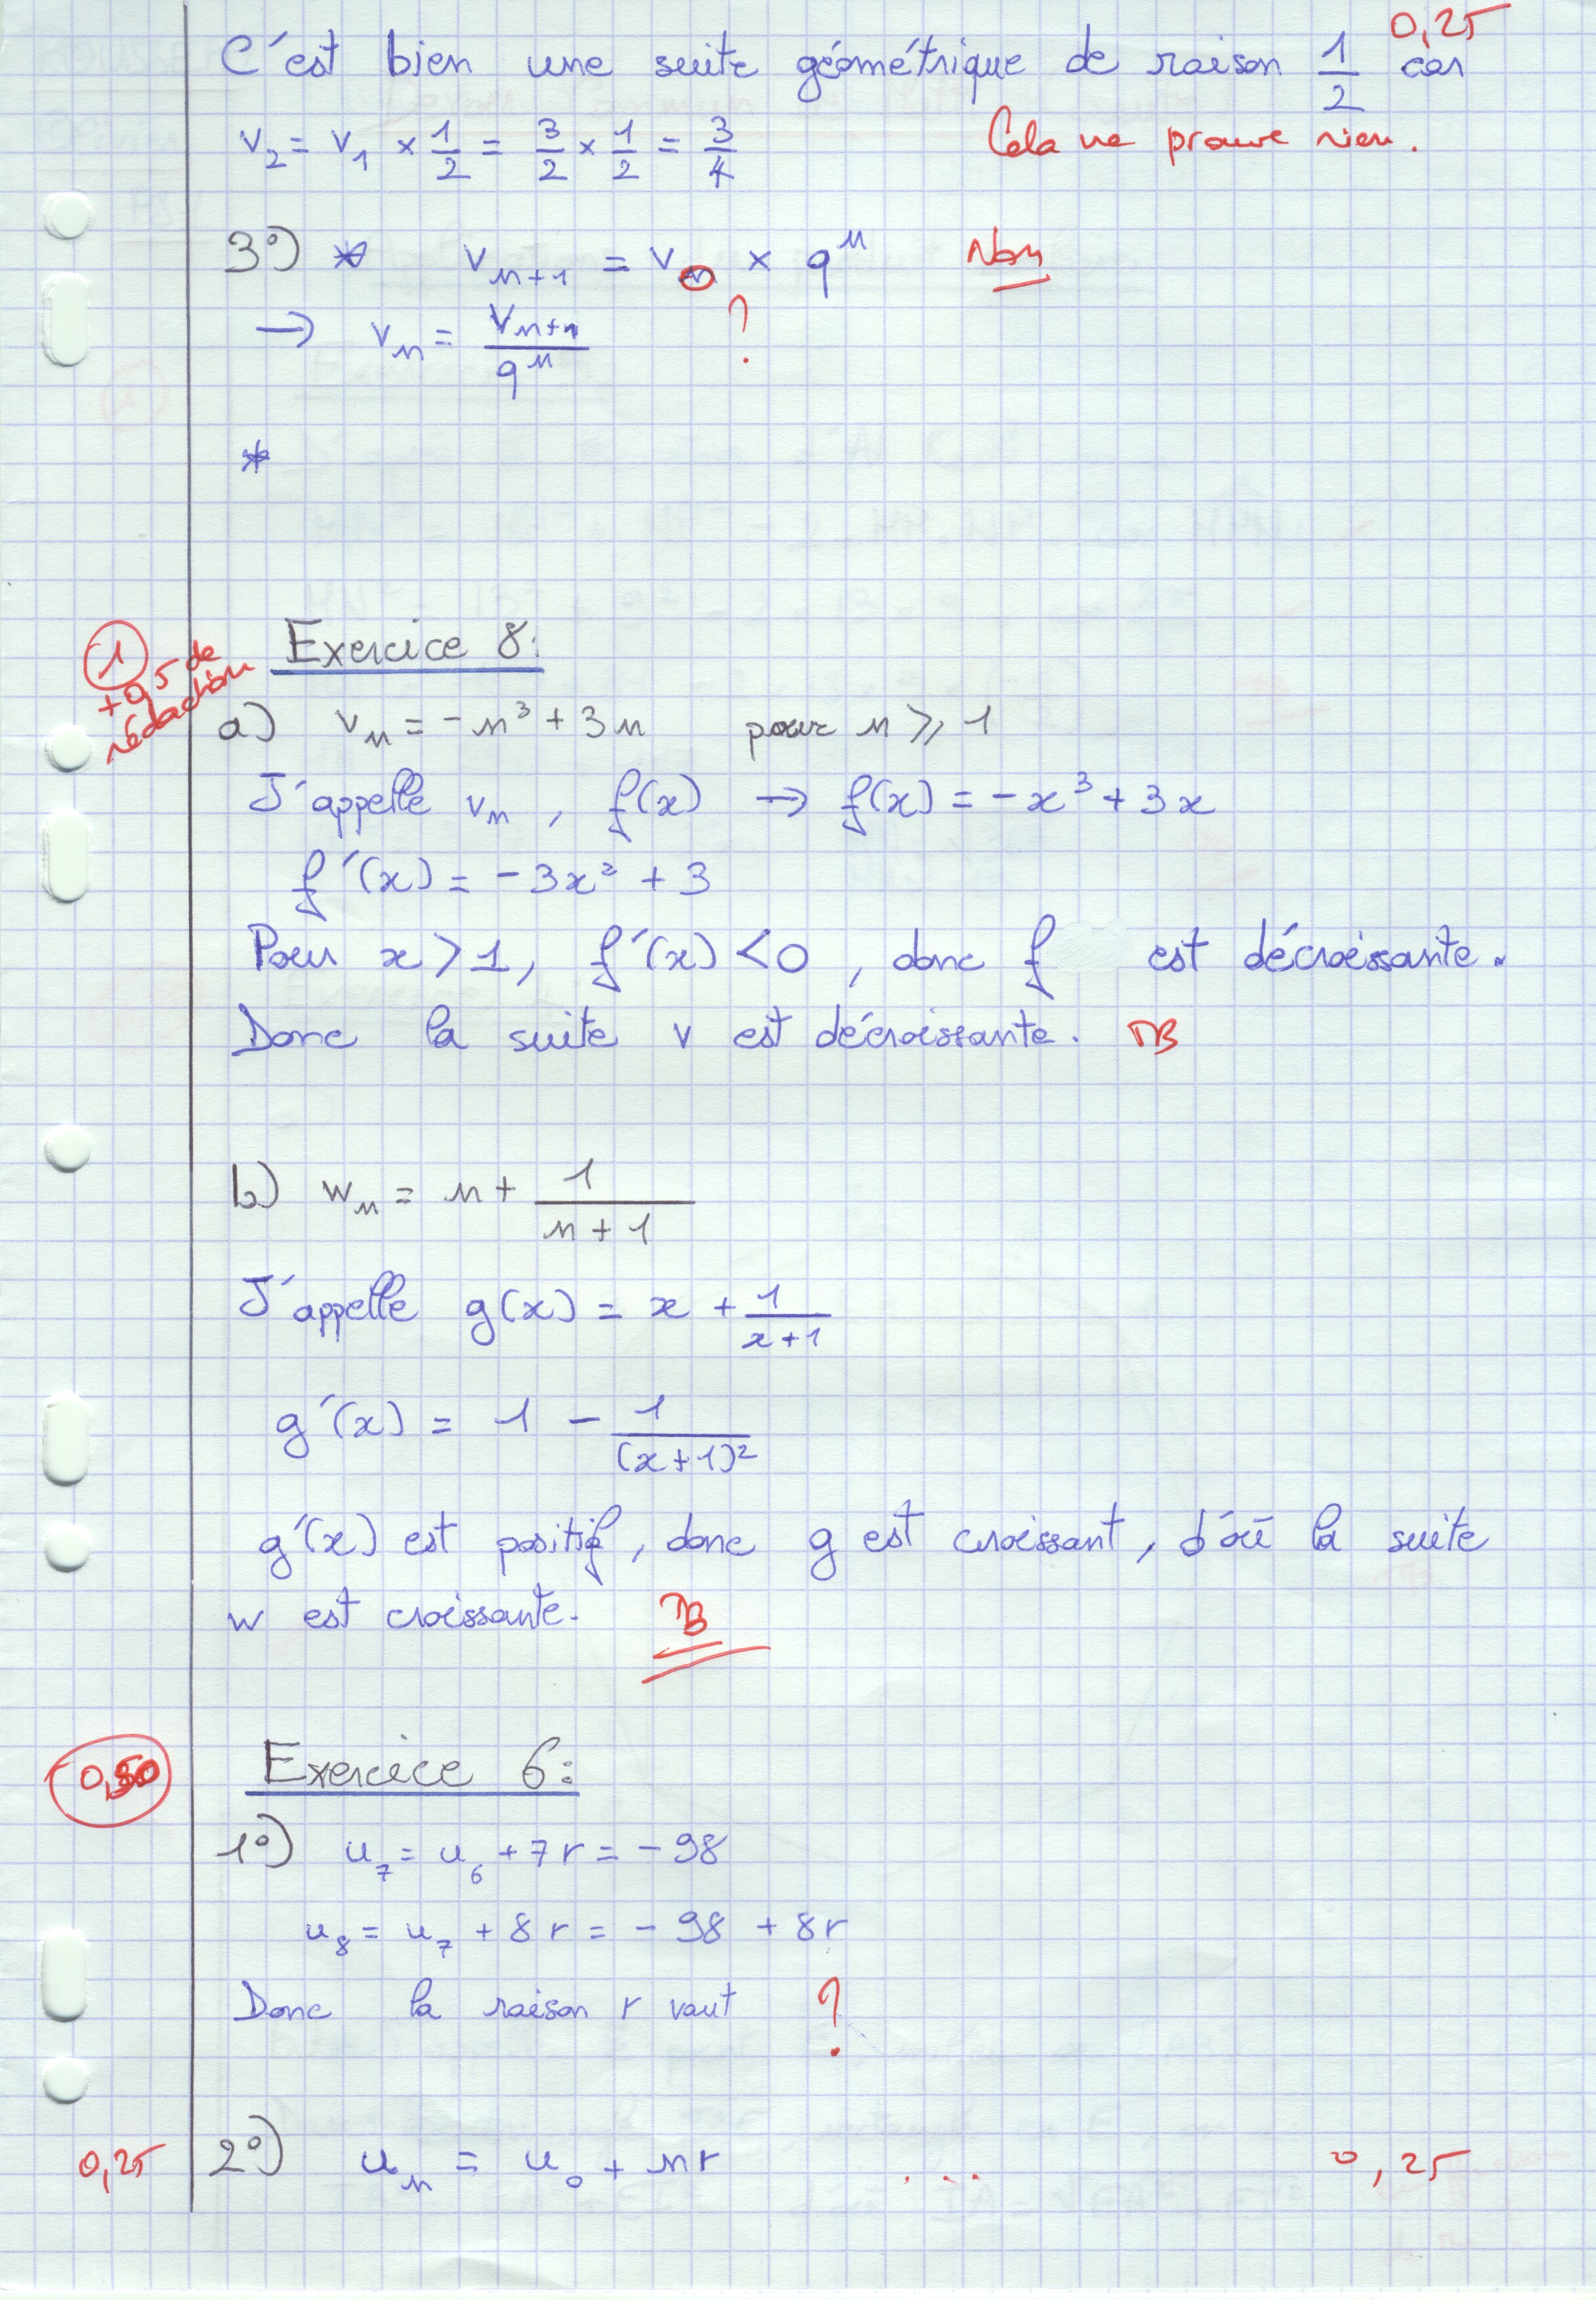 0,25
C'est bien une suite géométrique de raison 1/2 car
v₂ = v₁ × 1/2 = 3/2 × 1/2 = 3/4 Cela ne prouve rien.
3°) * vₙ₊₁ = vₙ × qⁿ Non
→ vₙ = vₙ₊₁/qⁿ ?
*
1 Exercice 8:
+0,5 de
rédaction
a) vₙ = -n³ + 3n pour n ⩾ 1
J'appelle vₙ, f(x) → f(x) = -x³ + 3x
f'(x) = -3x² + 3
Pour x > 1, f'(x) < 0, donc f est décroissante.
Donc la suite v est décroissante. TB
b) wₙ = n + 1/(n + 1)
J'appelle g(x) = x + 1/(x+1)
g'(x) = 1 - 1/(x+1)²
g'(x) est positif, donc g est croissant, d'où la suite
w est croissante. TB
0,50 Exercice 6:
1°) u₇ = u₆ + 7r = -98
u₈ = u₇ + 8r = -98 + 8r
Donc la raison r vaut ?
0,25 2°) uₙ = u₀ + nr ... 0,25